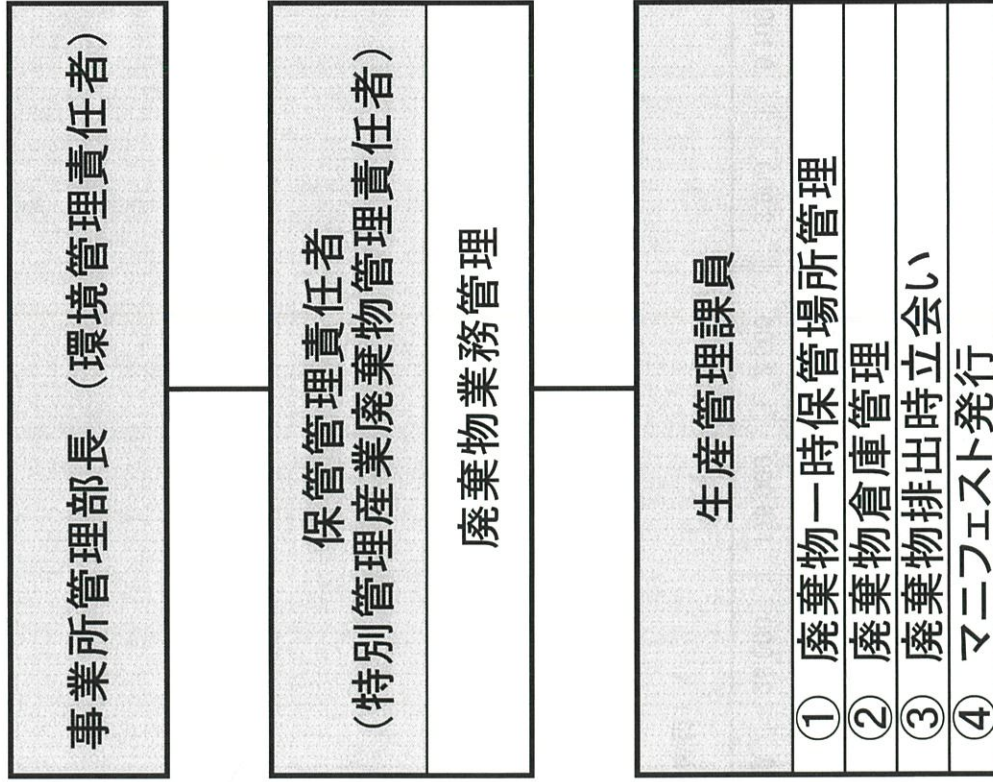 事業所管理部長 （環境管理責任者）
保管管理責任者
（特別管理産業廃棄物管理責任者）
廃棄物業務管理
生産管理課員
① 廃棄物一時保管場所管理
② 廃棄物倉庫管理
③ 廃棄物排出時立会い
④ マニフェスト発行